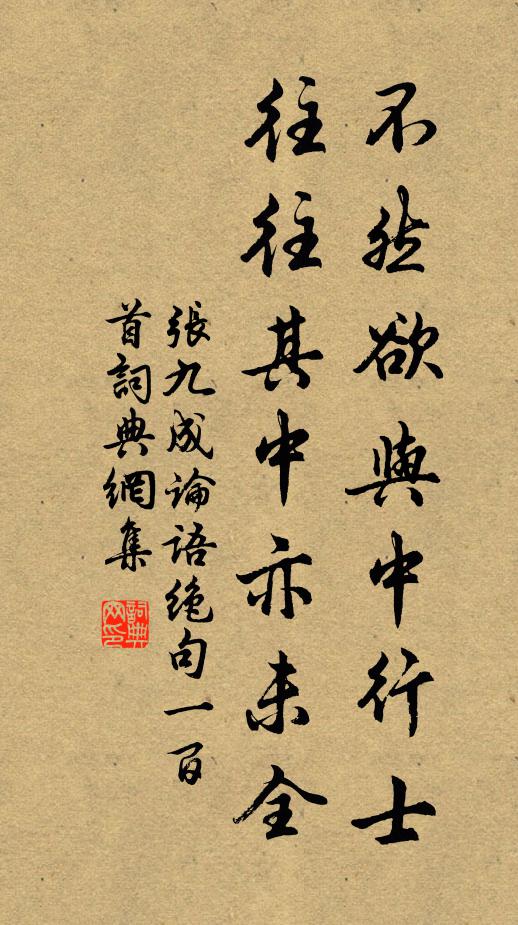 不然欲與中行士
往往其中亦未全
張九成論語絶句一百
首詞典網集
詞典
网印